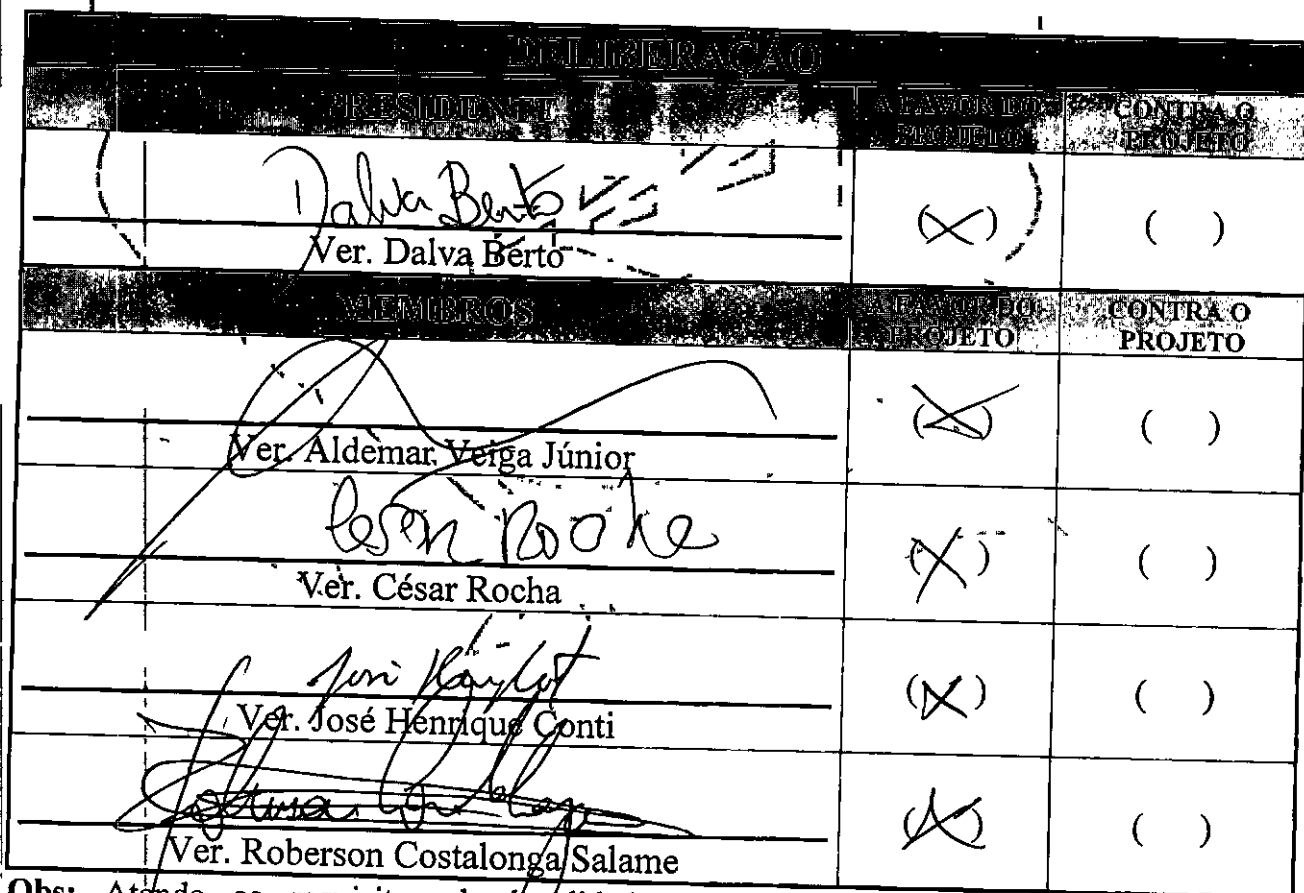 DELIBERAÇÃO
PRESIDENTE A FAVOR DO PROJETO CONTRA O PROJETO
Dalva Berto
Ver. Dalva Berto (X) ( )
MEMBROS A FAVOR DO PROJETO CONTRA O PROJETO
Ver. Aldemar Veiga Júnior (X) ( )
Ver. César Rocha (X) ( )
Ver. José Henrique Conti (X) ( )
Ver. Roberson Costalonga Salame (X) ( )
Obs: Atende os